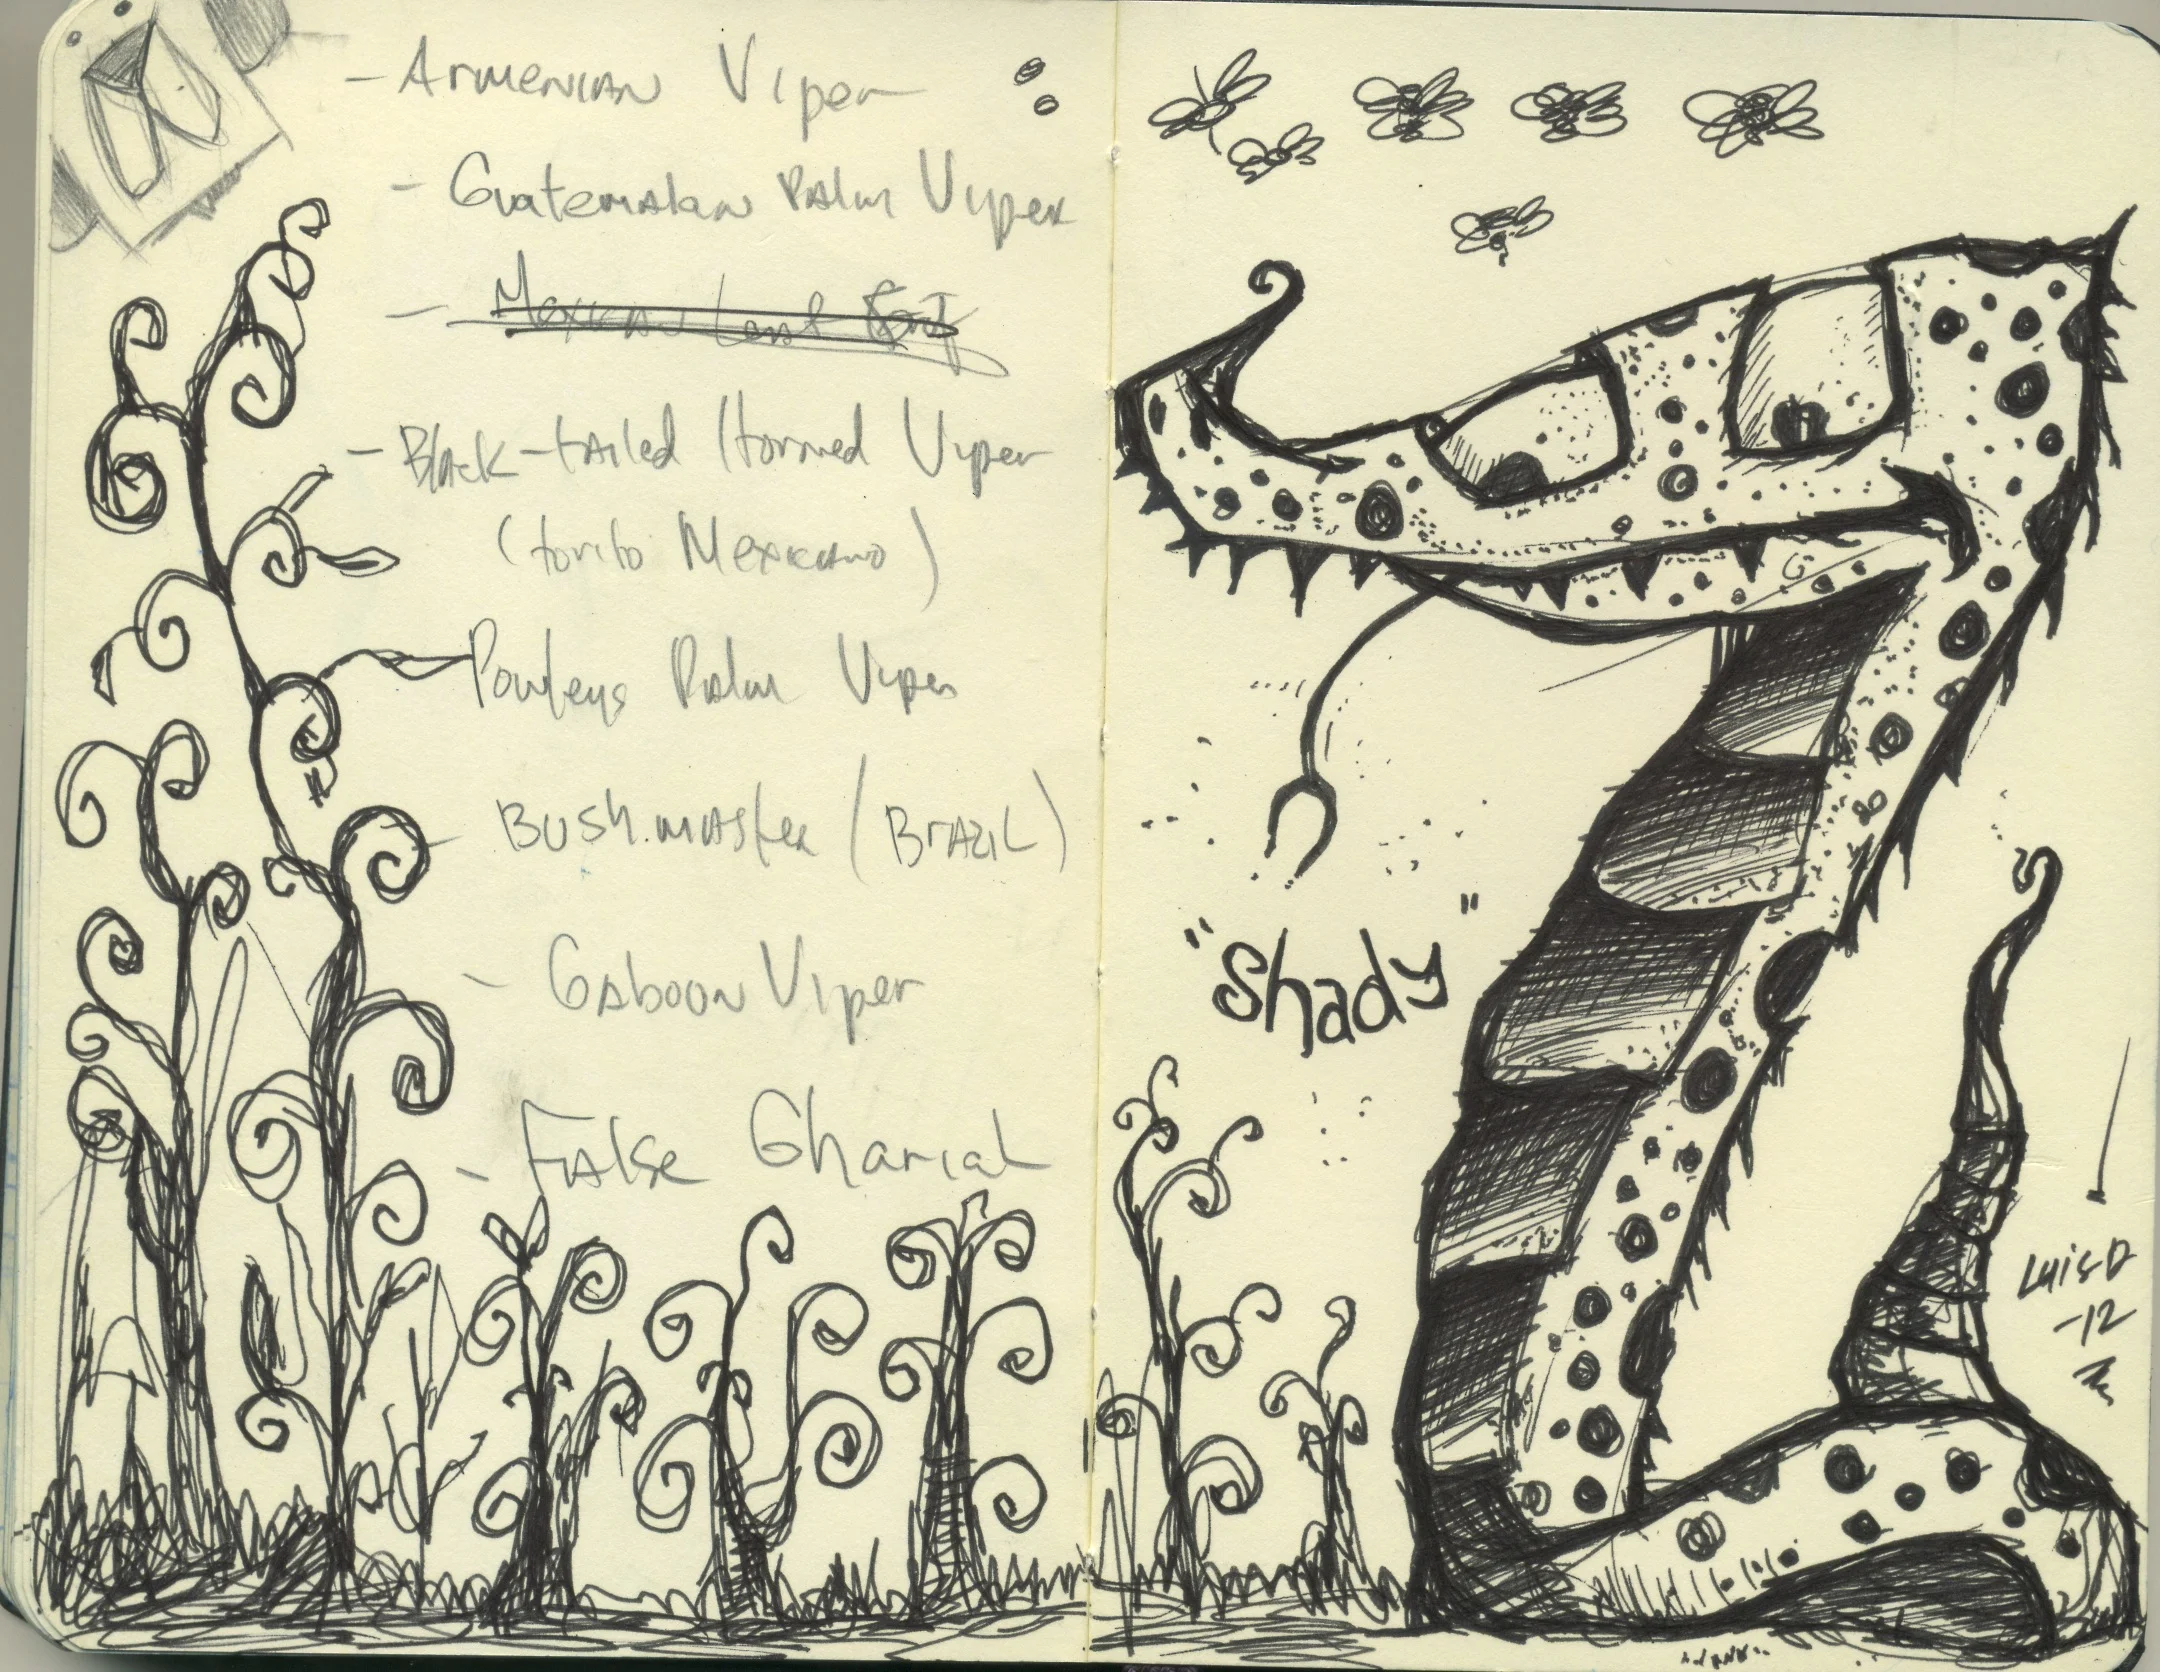 - Armenian Viper
- Guatemalan Palm Viper
- Mexican
- Black-tailed Horned Viper
(torito Mexicano)
Palm Viper
- Bush.master (Brazil)
- Gaboon Viper
- False Gharial
"Shady"
Luis D
-12